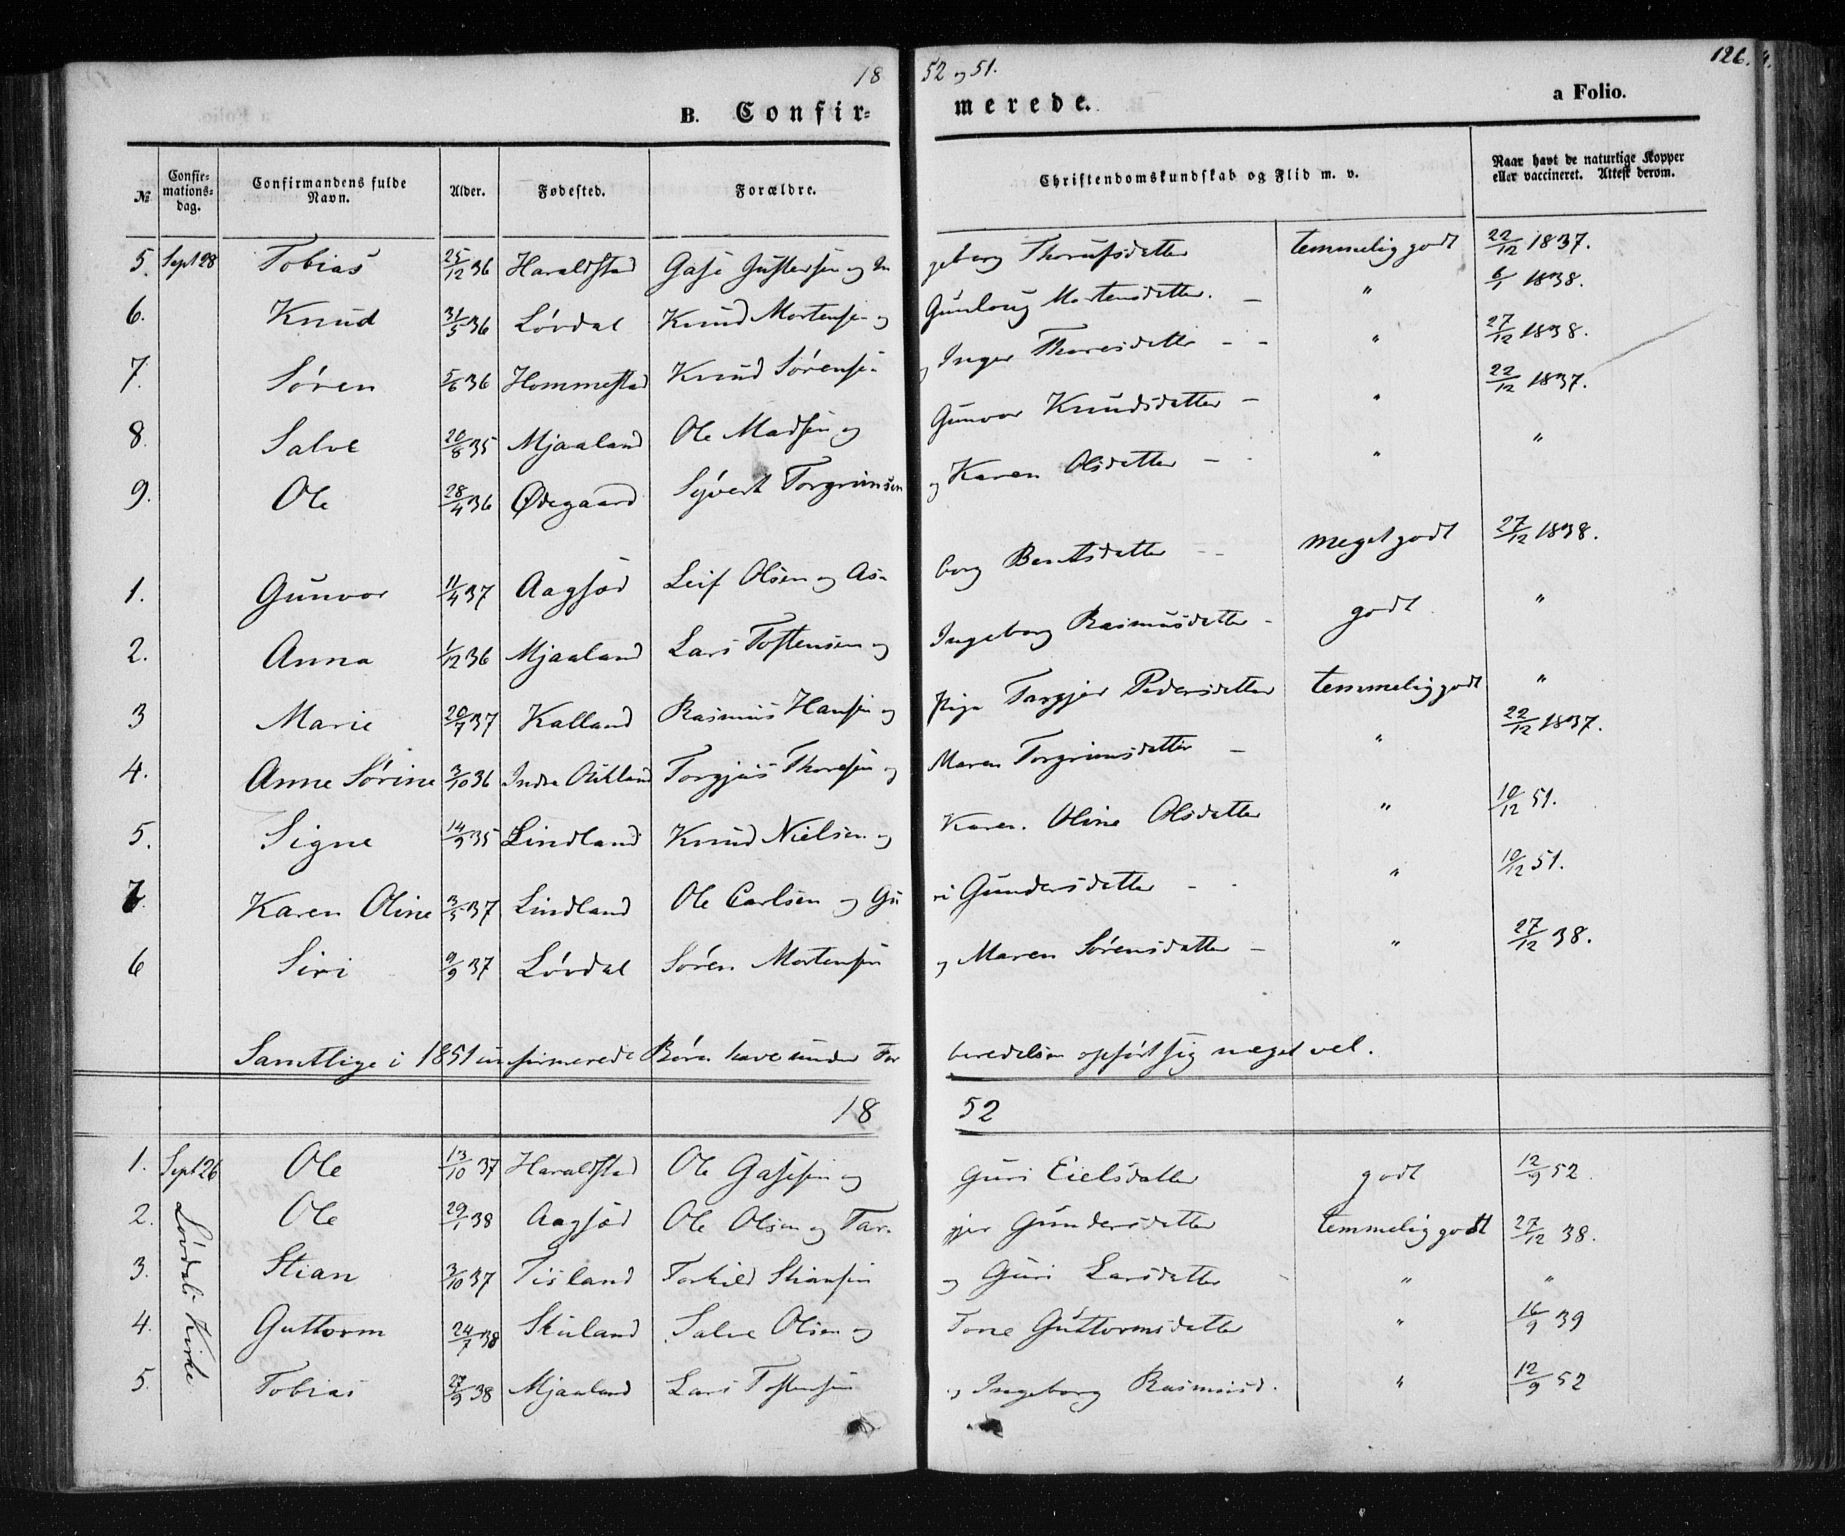 18 52 og 51. 126.
B. Confirmerede. a Folio.
№ Confirmationsdag. Confirmandens fulde Navn. Alder. Fødested. Forældre. Christendomskundskab og Flid m. v. Naar havt de naturlige Kopper eller vaccineret. Attest derom.
5. Sept 28 Tobias 25/12 36 Haraldstad Gase Gustersen og Ingeborg temmelig godt 22/12 1837.
6. Knud 31/5 36 Løvdal Knud Mortensen og Gunloug Mortensdatter. – " 6/1 1838.
7. Søren 5/6 36 Hommestad Knud Sørensen og Inger Thoresdatter - - " 27/12 1838.
8. Salve 20/8 35 Mjaaland Ole Madsen og Gunvor Knudsdatter – " 22/12 1837.
9. Ole 28/4 36 Ødegaard Syvert Torgrimsen og Karen Olsdatter – " "
1. Gunvor 11/4 37 Aagsød Leif Olsen og Asborg Bentsdatter - - meget godt 27/12 1838.
2. Anna 1/12 36 Mjaaland Lars Tostensen og Ingeborg Rasmusdatter - godt "
3 Marie 20/7 37 Kalland Rasmus Hansen og Pige Targjer Pedersdatter temmelig godt "
4. Anne Sørine 3/10 36 Indre Torgjus Thoresen og Maren Torgrimsdatter – " 22/12 1837.
5. Signe 14/9 35 Lindland Knud Nielsen og Karen Oline Olsdatter " 10/12 51.
7. Karen Oline 3/5 37 Lindland Ole Carlsen og Guri Gundersdatter - - " 10/12 51.
6 Siri 9/9 37 Løvdal Søren Mortensen og Maren Sørensdatter – " 27/12 38.
Samtlige i 1851 confirmerede Børn have under Forberedelsen opført sig meget vel.
18 52
1. Sept 26 Ole 13/10 37 Haraldstad Ole Gasesen og Guri Eielsdatter godt 12/9 52.
2. Ole 29/1 38 Aagsød Ole Olsen og Targjer Gundersdatter temmelig godt 27/12 38.
3. Stian 3/10 37 Tisland Torkild Stiansen og Guri Larsdatter " "
4. Guttorm 24/7 38 Skuland Salve Olsen og Tone Guttormsdatter " 16/9 39
5. Tobias 27/9 38 Mjaaland Lars Tostensen og Ingeborg Rasmusd. " 12/9 52
Løvdals Kirke